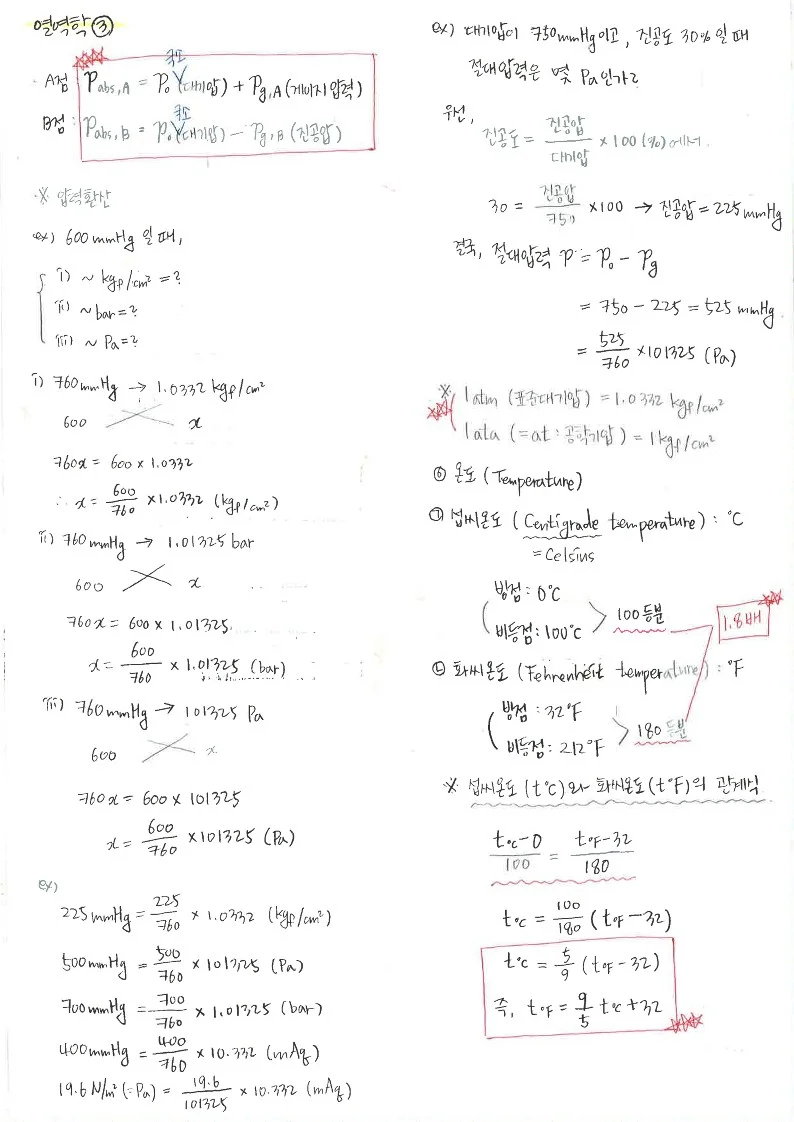 열역학 ③
A점 Pabs,A = P₀ (대기압) + Pg,A (게이지압력)
국소
B점 : Pabs,B = P₀ (대기압) − Pg,B (진공압)
국소
※ 압력환산
ex) 600 mmHg 일 때,
i) ~ kgf/cm² = ?
ii) ~ bar = ?
iii) ~ Pa = ?
i) 760 mmHg → 1.0332 kgf/cm²
600 x
760x = 600 × 1.0332
∴ x = 600/760 × 1.0332 (kgf/cm²)
ii) 760 mmHg → 1.01325 bar
600 x
760x = 600 × 1.01325
x = 600/760 × 1.01325 (bar)
iii) 760 mmHg → 101325 Pa
600 x
760x = 600 × 101325
x = 600/760 × 101325 (Pa)
ex)
225 mmHg = 225/760 × 1.0332 (kgf/cm²)
500 mmHg = 500/760 × 101325 (Pa)
700 mmHg = 700/760 × 1.01325 (bar)
400 mmHg = 400/760 × 10.332 (mAq)
19.6 N/m² (=Pa) = 19.6/101325 × 10.332 (mAq)
ex) 대기압이 750 mmHg이고, 진공도 30% 일 때
절대압력은 몇 Pa인가?
우선,
진공도 = 진공압/대기압 × 100 (%)에서.
30 = 진공압/750 × 100 → 진공압 = 225 mmHg
결국, 절대압력 P = P₀ − Pg
= 750 − 225 = 525 mmHg
= 525/760 × 101325 (Pa)
※ 1 atm (표준대기압) = 1.0332 kgf/cm²
1 ata (=at : 공학기압) = 1 kgf/cm²
⑥ 온도 (Temperature)
㉠ 섭씨온도 (Centigrade temperature) : °C
= Celsius
빙점 : 0°C
비등점 : 100°C
100등분
1.8배
㉡ 화씨온도 (Fehrenheit temperature) : °F
빙점 : 32°F
비등점 : 212°F
180 등분
※ 섭씨온도 (t°C)와 화씨온도 (t°F)의 관계식
t°C−0/100 = t°F−32/180
t°C = 100/180 (t°F − 32)
t°C = 5/9 (t°F − 32)
즉, t°F = 9/5 t°C + 32